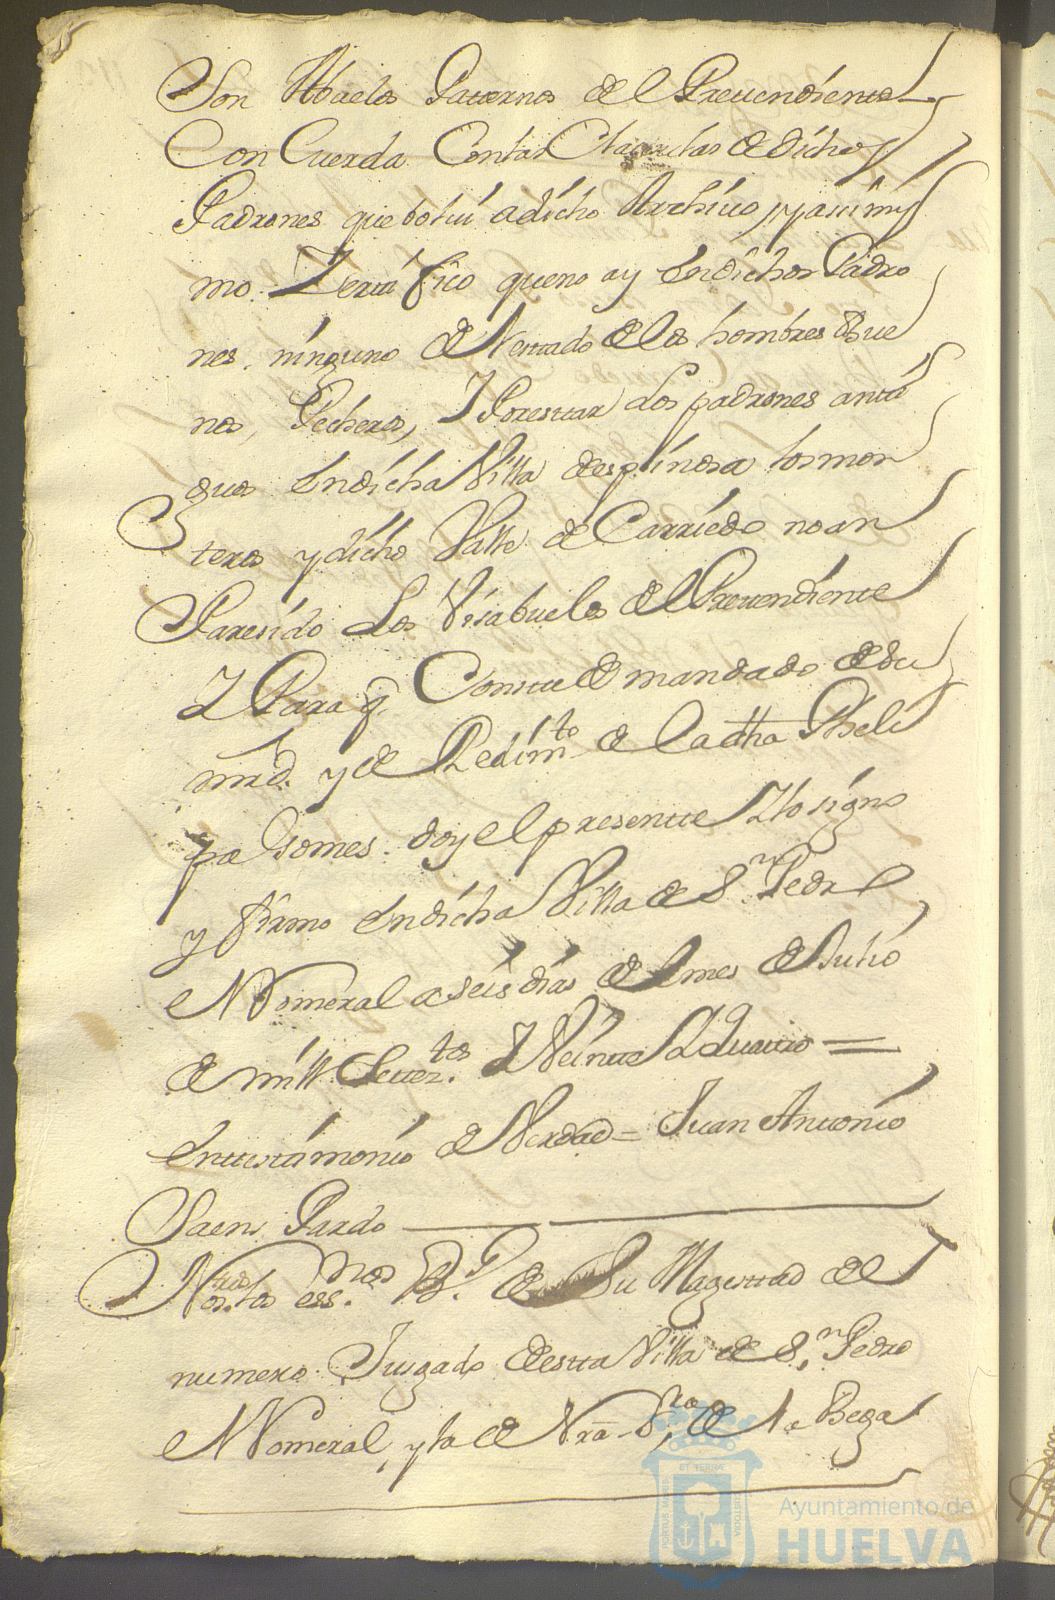 Son Abuelos Paternos de el Pretendiente
Con Cuerda Con las Clausulas de dichos
Padrones que bolui a dicho Archiuo, y assimis
mo Zertifico que no ay En dichos Padro
nes ninguno de Nettado de los hombres Bue
nos, Pecheros, Y Por estar Los padrones anti
guos En dicha Villa de espinosa los mon
teros y dicho Valle de Carriedo no an
Paresido Los Visabuelos de el Pretendiente
Y Para q. Conste de mandado de su
mrd. y de Pedimto de la dha Pheli
pa Gomes doy el presente Y lo signo
y firmo En dicha Villa de Sn. Pedro
el Romeral a seis dias de el mes de Julio
de mill Seteztos Y Veinte Y Quatro =
En testimonio de Verdad = Juan Antonio
Saens Pardo
Nos los essnos Rs. de Su Magestad de el
numero Juzgado de esta Villa de Sn. Pedro
el Romeral, y la de Nra Sra de la Bega
Ayuntamiento de
HUELVA